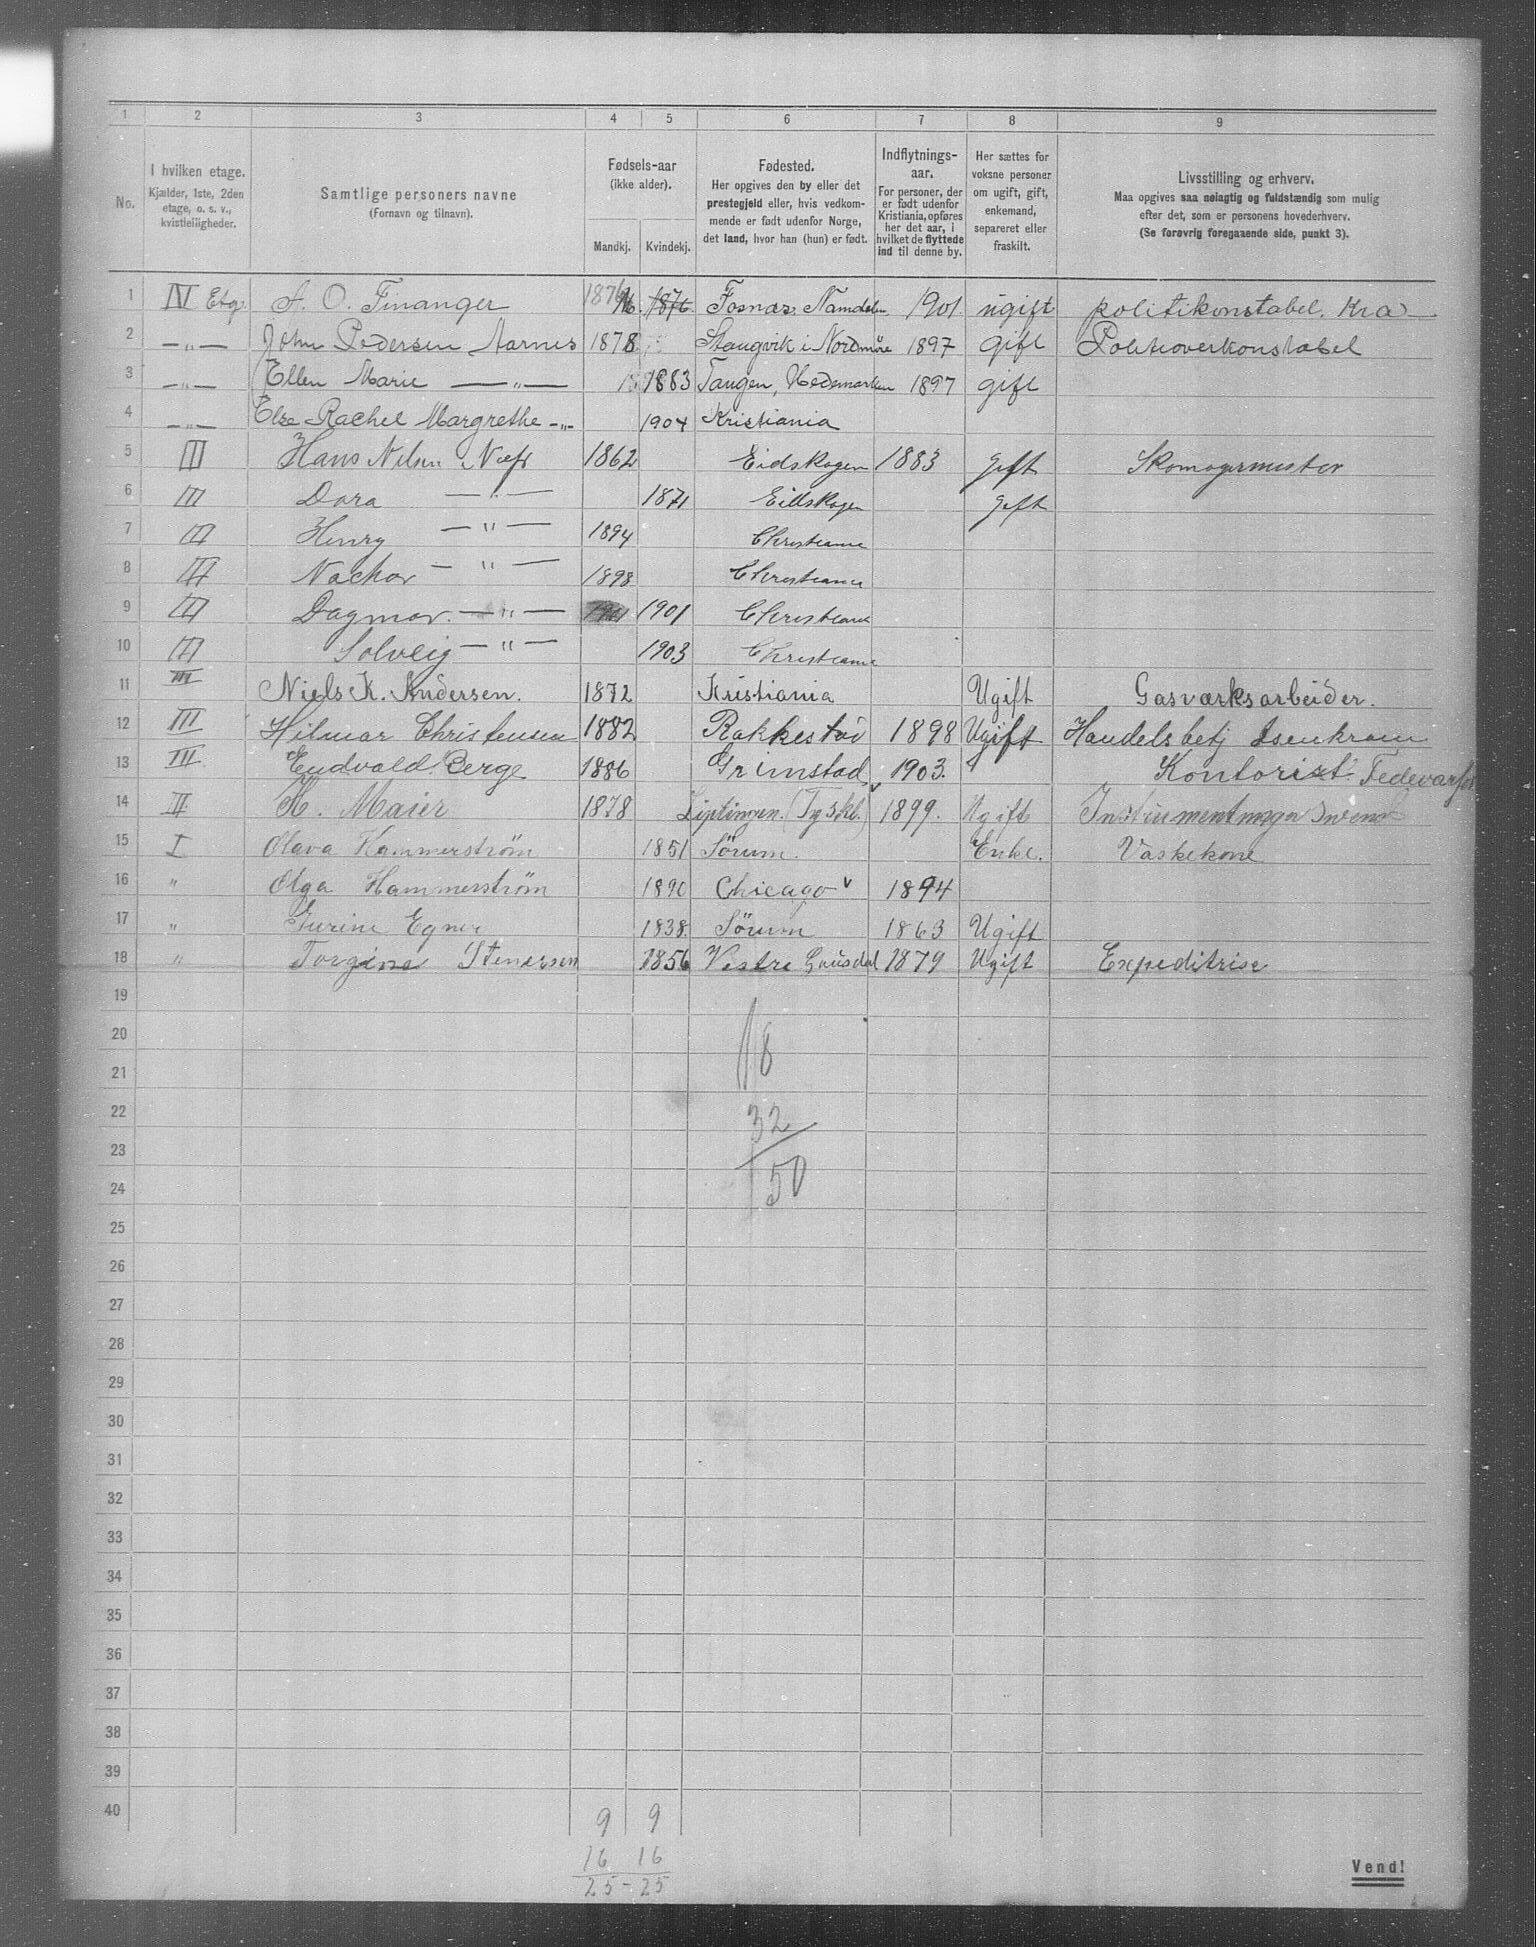 1 2 3 4 5 6 7 8 9
No.
I hvilken etage.
Kjælder, 1ste, 2den
etage, o. s. v.,
kvistleiligheder.
Samtlige personers navne
(Fornavn og tilnavn).
Fødsels-aar
(ikke alder).
Mandkj. Kvindekj.
Fødested.
Her opgives den by eller det
prestegjeld eller, hvis vedkom-
mende er født udenfor Norge,
det land, hvor han (hun) er født.
Indflytnings-
aar.
For personer, der
er født udenfor
Kristiania, opføres
her det aar, i
hvilket de flyttede
ind til denne by.
Her sættes for
voksne personer
om ugift, gift,
enkemand,
separeret eller
fraskilt.
Livsstilling og erhverv.
Maa opgives saa nøiagtig og fuldstændig som mulig
efter det, som er personens hovederhverv.
(Se forøvrig foregaaende side, punkt 3).
1 IV Etg. A. O. Finanger 1876 1876 Fosnæs, Namdalen 1901 ugift politikonstabel, Kra
2 —„— John Pedersen Aarnes 1878 Stangvik i Nordmøre 1897 gift Politioverkonstabel
3 —„— Ellen Marie —„— 1883 Tangen, Hedemarken 1897 gift
4 —„— Else Rachel Margrethe —„— 1904 Kristiania
5 III Hans Nilsen Næss 1862 Eidskogen 1883 gift Skomagermester
6 III Dora —„— 1871 Eidskogen gift
7 III Henry —„— 1894 Christiania
8 III Nackor —„— 1898 Christiania
9 III Dagmar —„— 1901 1901 Christiania
10 III Solveig —„— 1903 Christiania
11 III Niels K. Andersen. 1872 Kristiania Ugift Gasværksarbeider.
12 III Hilmar Christensen 1882 Rakkestad 1898 Ugift Handelsbetj Isenkram
13 III Eudvald Berge 1886 Grimstad 1903. Kontorist Fedevarfor
14 II K. Maier 1878 Liptingen. (Tyskl.) 1899. Ugift Instrumentmagersvend
15 I Olava Hammerstrøm 1851 Sørum. Enke. Vaskekone
16 " Olga Hammerstrøm 1890 Chicago 1894
17 " Gurine Egner 1838 Sørum 1863 Ugift
18 " Torgine Stenersen 1856 Vestre Gausdal 1879 Ugift Expeditrise
19
20 18
21
22 32
23
24 50
25
26
27
28
29
30
31
32
33
34
35
36
37
38
39
40 9 9
16 16
25 - 25
Vend!